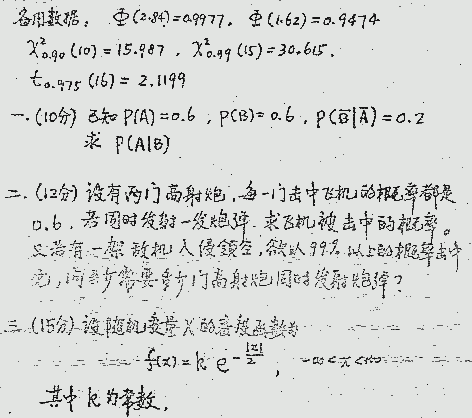 备用数据： Φ(2.84)=0.9977. Φ(1.62)=0.9474
χ²₀.₉₀(10)=15.987 , χ²₀.₉₉(15)=30.615.
t₀.₉₇₅(16)=2.1199
一.(10分) 已知 P(A)=0.6 , P(B)=0.6 , P(B̅|A̅)=0.2
求 P(A|B)
二.(12分) 设有两门高射炮,每一门击中飞机的概率都是
0.6, 若同时发射一发炮弹. 求飞机被击中的概率。
又若有一架敌机入侵领空,欲以99%以上的概率击中
它,问至少需要多少门高射炮同时发射炮弹？
三.(15分) 设随机变量X的密度函数为
f(x)=k e^{-|x|/2} , -∞<x<+∞
其中k为常数.